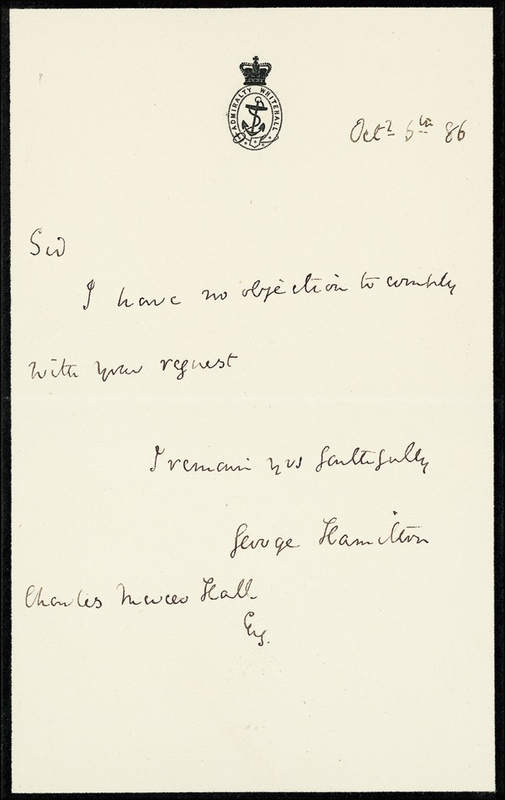 ADMIRALTY WHITEHALL
Octr 6th 86
Sir
I have no objection to comply
with your request
I remain yrs faithfully
George Hamilton
Charles Hall
Esq.